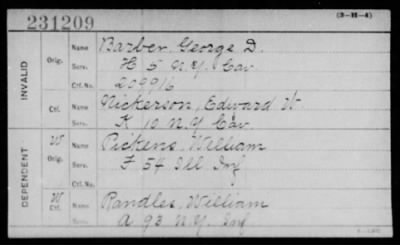 231209
(3-11-4)
INVALID
Orig.
Name Barber, George D.
Serv. H 5 N.Y. Cav.
Ctf. No. 209916
Ctf.
Name Nickerson, Edward W.
Serv. K 10 N.Y. Cav.
DEPENDENT
W Orig.
Name Pickens, William
Serv. F 54 Ill Inf
Ctf. No.
W Ctf.
Name Randles, William
Serv. A 93 N.Y. Inf